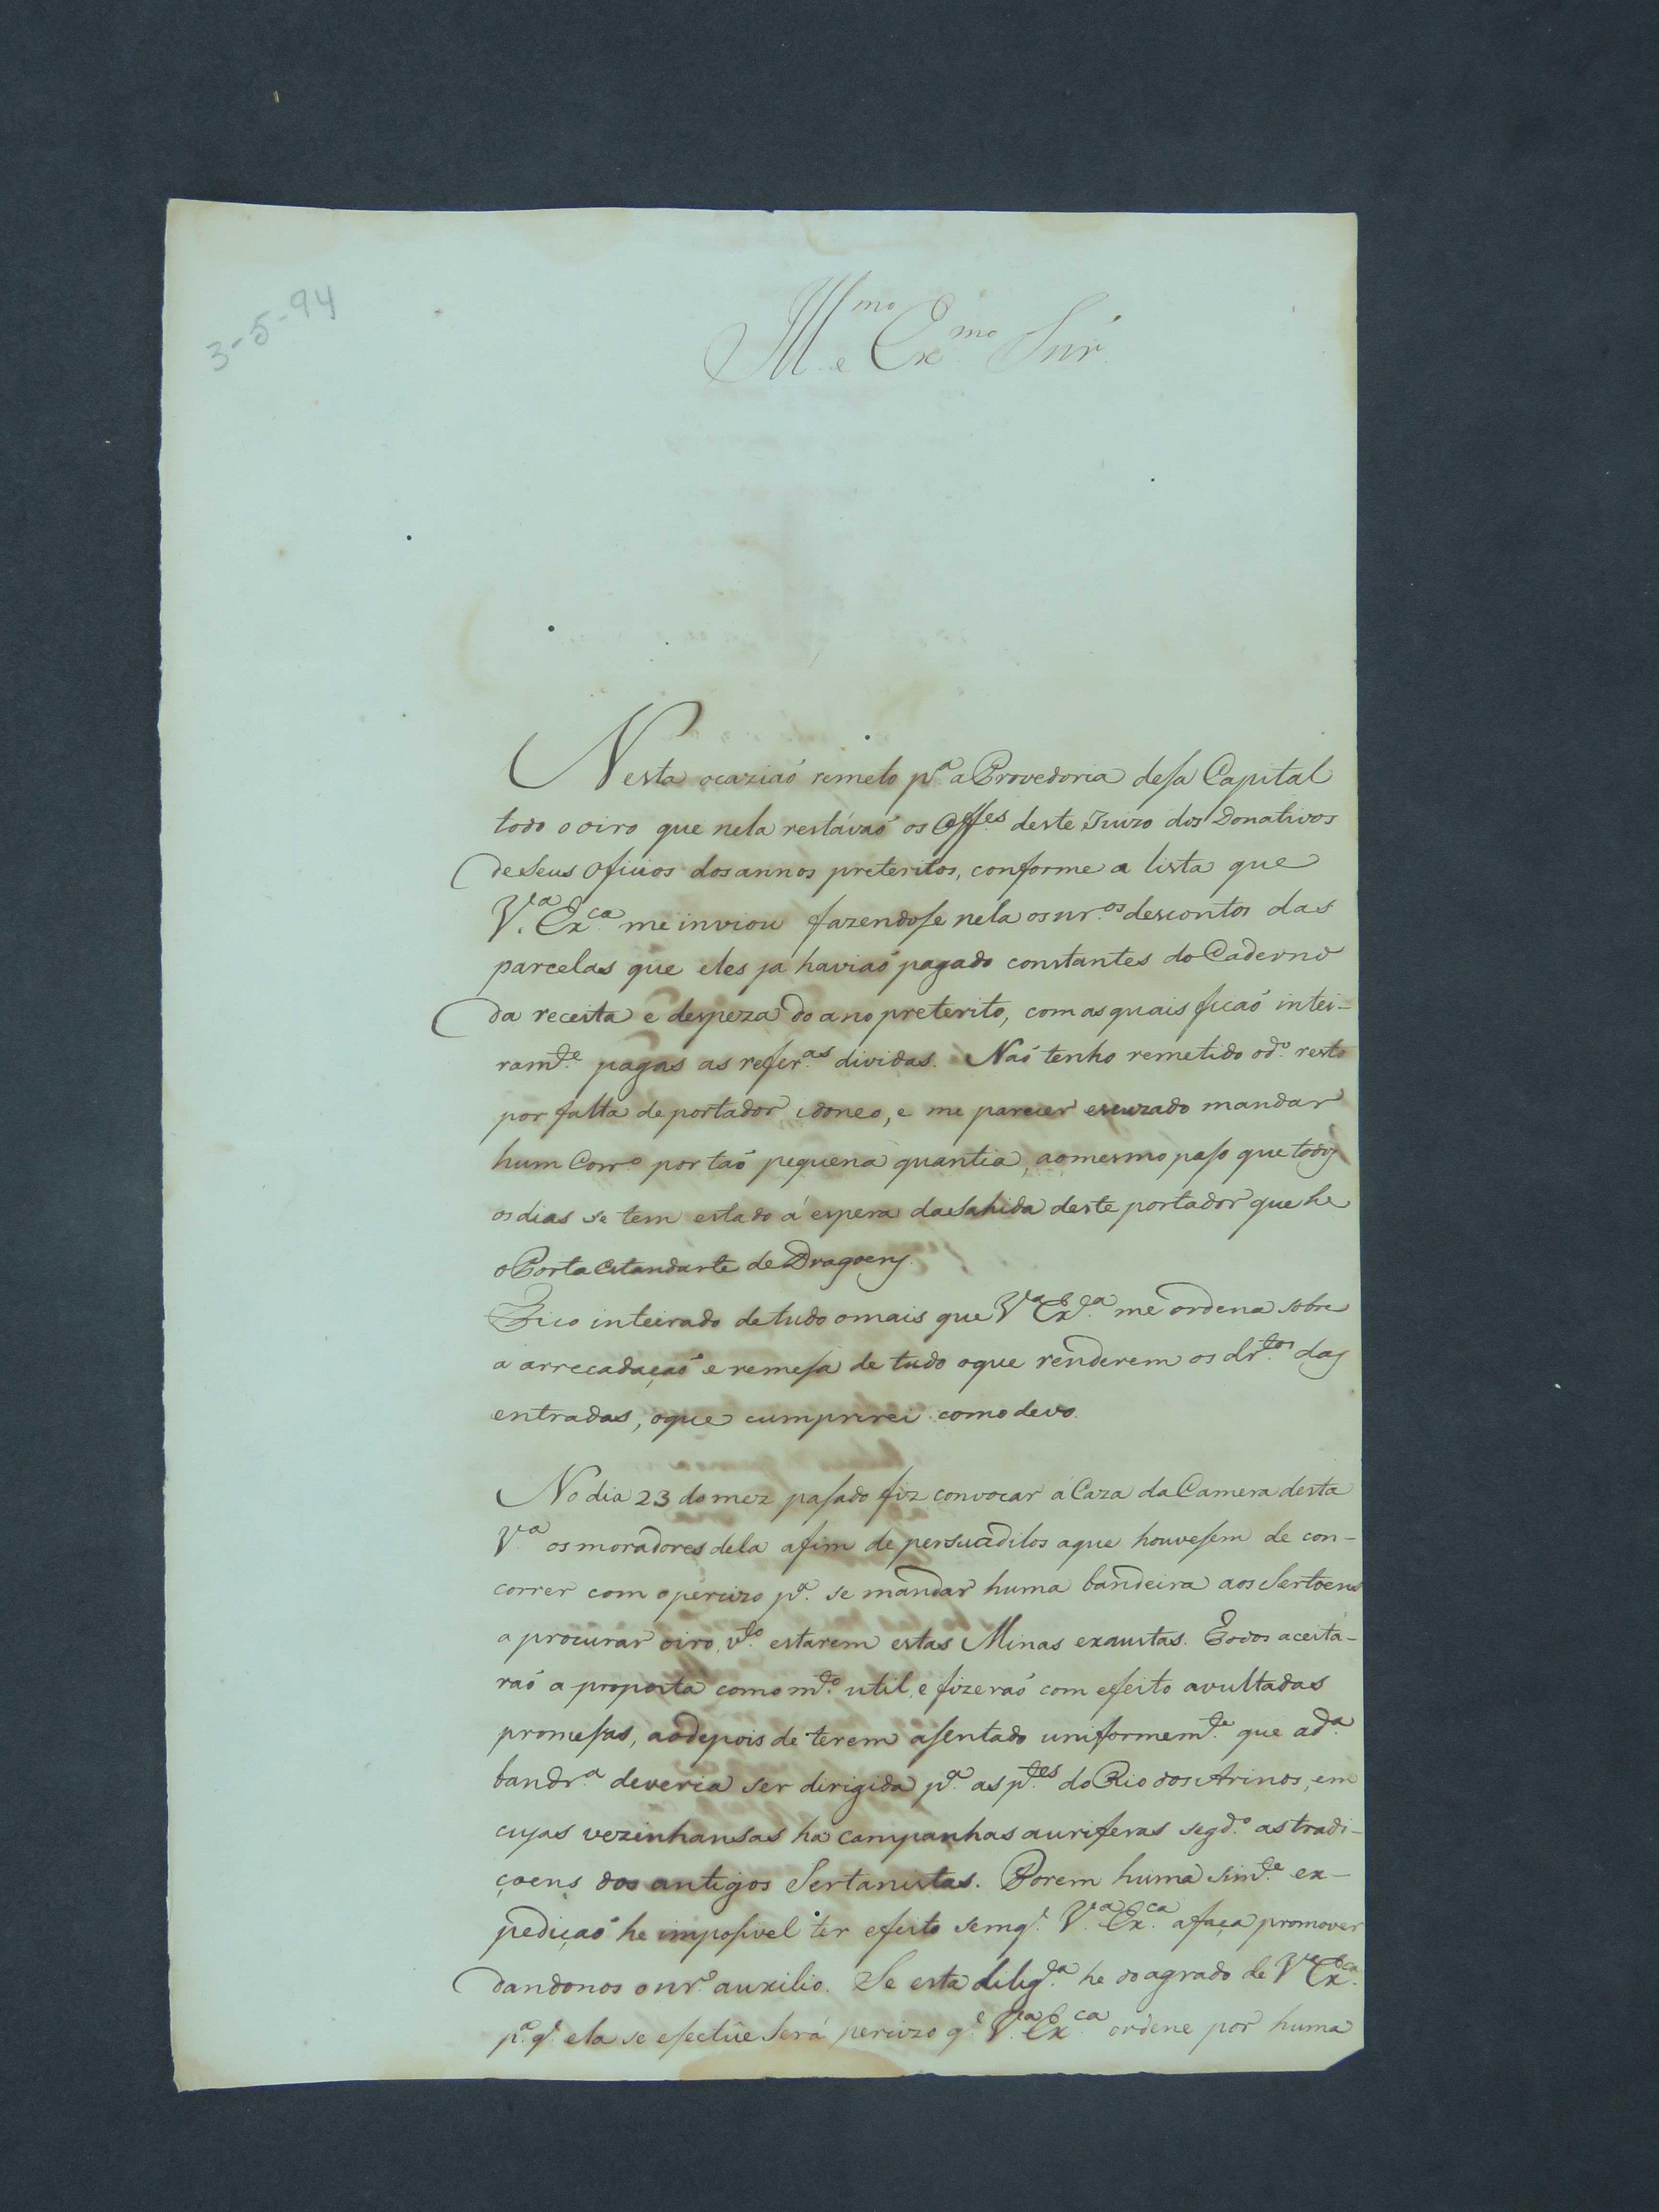 3-5-94
Ill.mo e Ex.mo Snr.
Nesta ocaziaõ remeto p.a a Provedoria desa Capital
todo o oiro que nela restávaõ os Off.es deste Juizo dos Donativos
de seus Oficios dos annos preteritos, conforme a lista que
V.a Ex.ca me inviou fazendose nela os nr.os descontos das
parcelas que eles ja haviaõ pagado constantes do Caderno
da receita e despeza do ano preterito, com as quais ficaõ intei-
ram.te pagas as refer.as dividas. Naõ tenho remetido o d.o resto
por falta de portador idoneo, e me parecer escuzado mandar
hum Corr.o por taõ pequena quantia, ao mesmo paso que todos
os dias se tem estado á espera da sahida deste portador que he
o Porta Estandarte de Dragoens.
Fico inteirado de tudo o mais que V.a Ex.ca me ordena sobre
a arrecadaçaõ e remesa de tudo o que renderem os dr.tos das
entradas, o que cumprirei como devo.
No dia 23 do mez pasado fiz convocar á Caza da Camera desta
V.a os moradores dela afim de persuadilos a que houvesem de con-
correr com o percizo p.a se mandar huma bandeira aos Sertoens
a procurar oiro, v.to estarem estas Minas exaustas. Todos aceitá-
raõ a proposta como m.to util, e fizeraõ com efeito avultadas
promesas, ao depois de terem asentado uniformem.te que a d.a
bandr.a deveria ser dirigida p.a as p.tes do Rio dos Arinos, em
cujas vezinhansas há campanhas auriferas segd.o as tradi-
çoens dos antigos Sertanistas. Porem huma sim.e ex-
pediçaõ he imposivel ter efeito sem q.' V.a Ex.ca a faça promover
dandonos o nr.o auxilio. Se esta dilig.a he do agrado de V.a Ex.ca
p.a q.' ela se efectûe será percizo q.e V.a Ex.ca ordene por huma